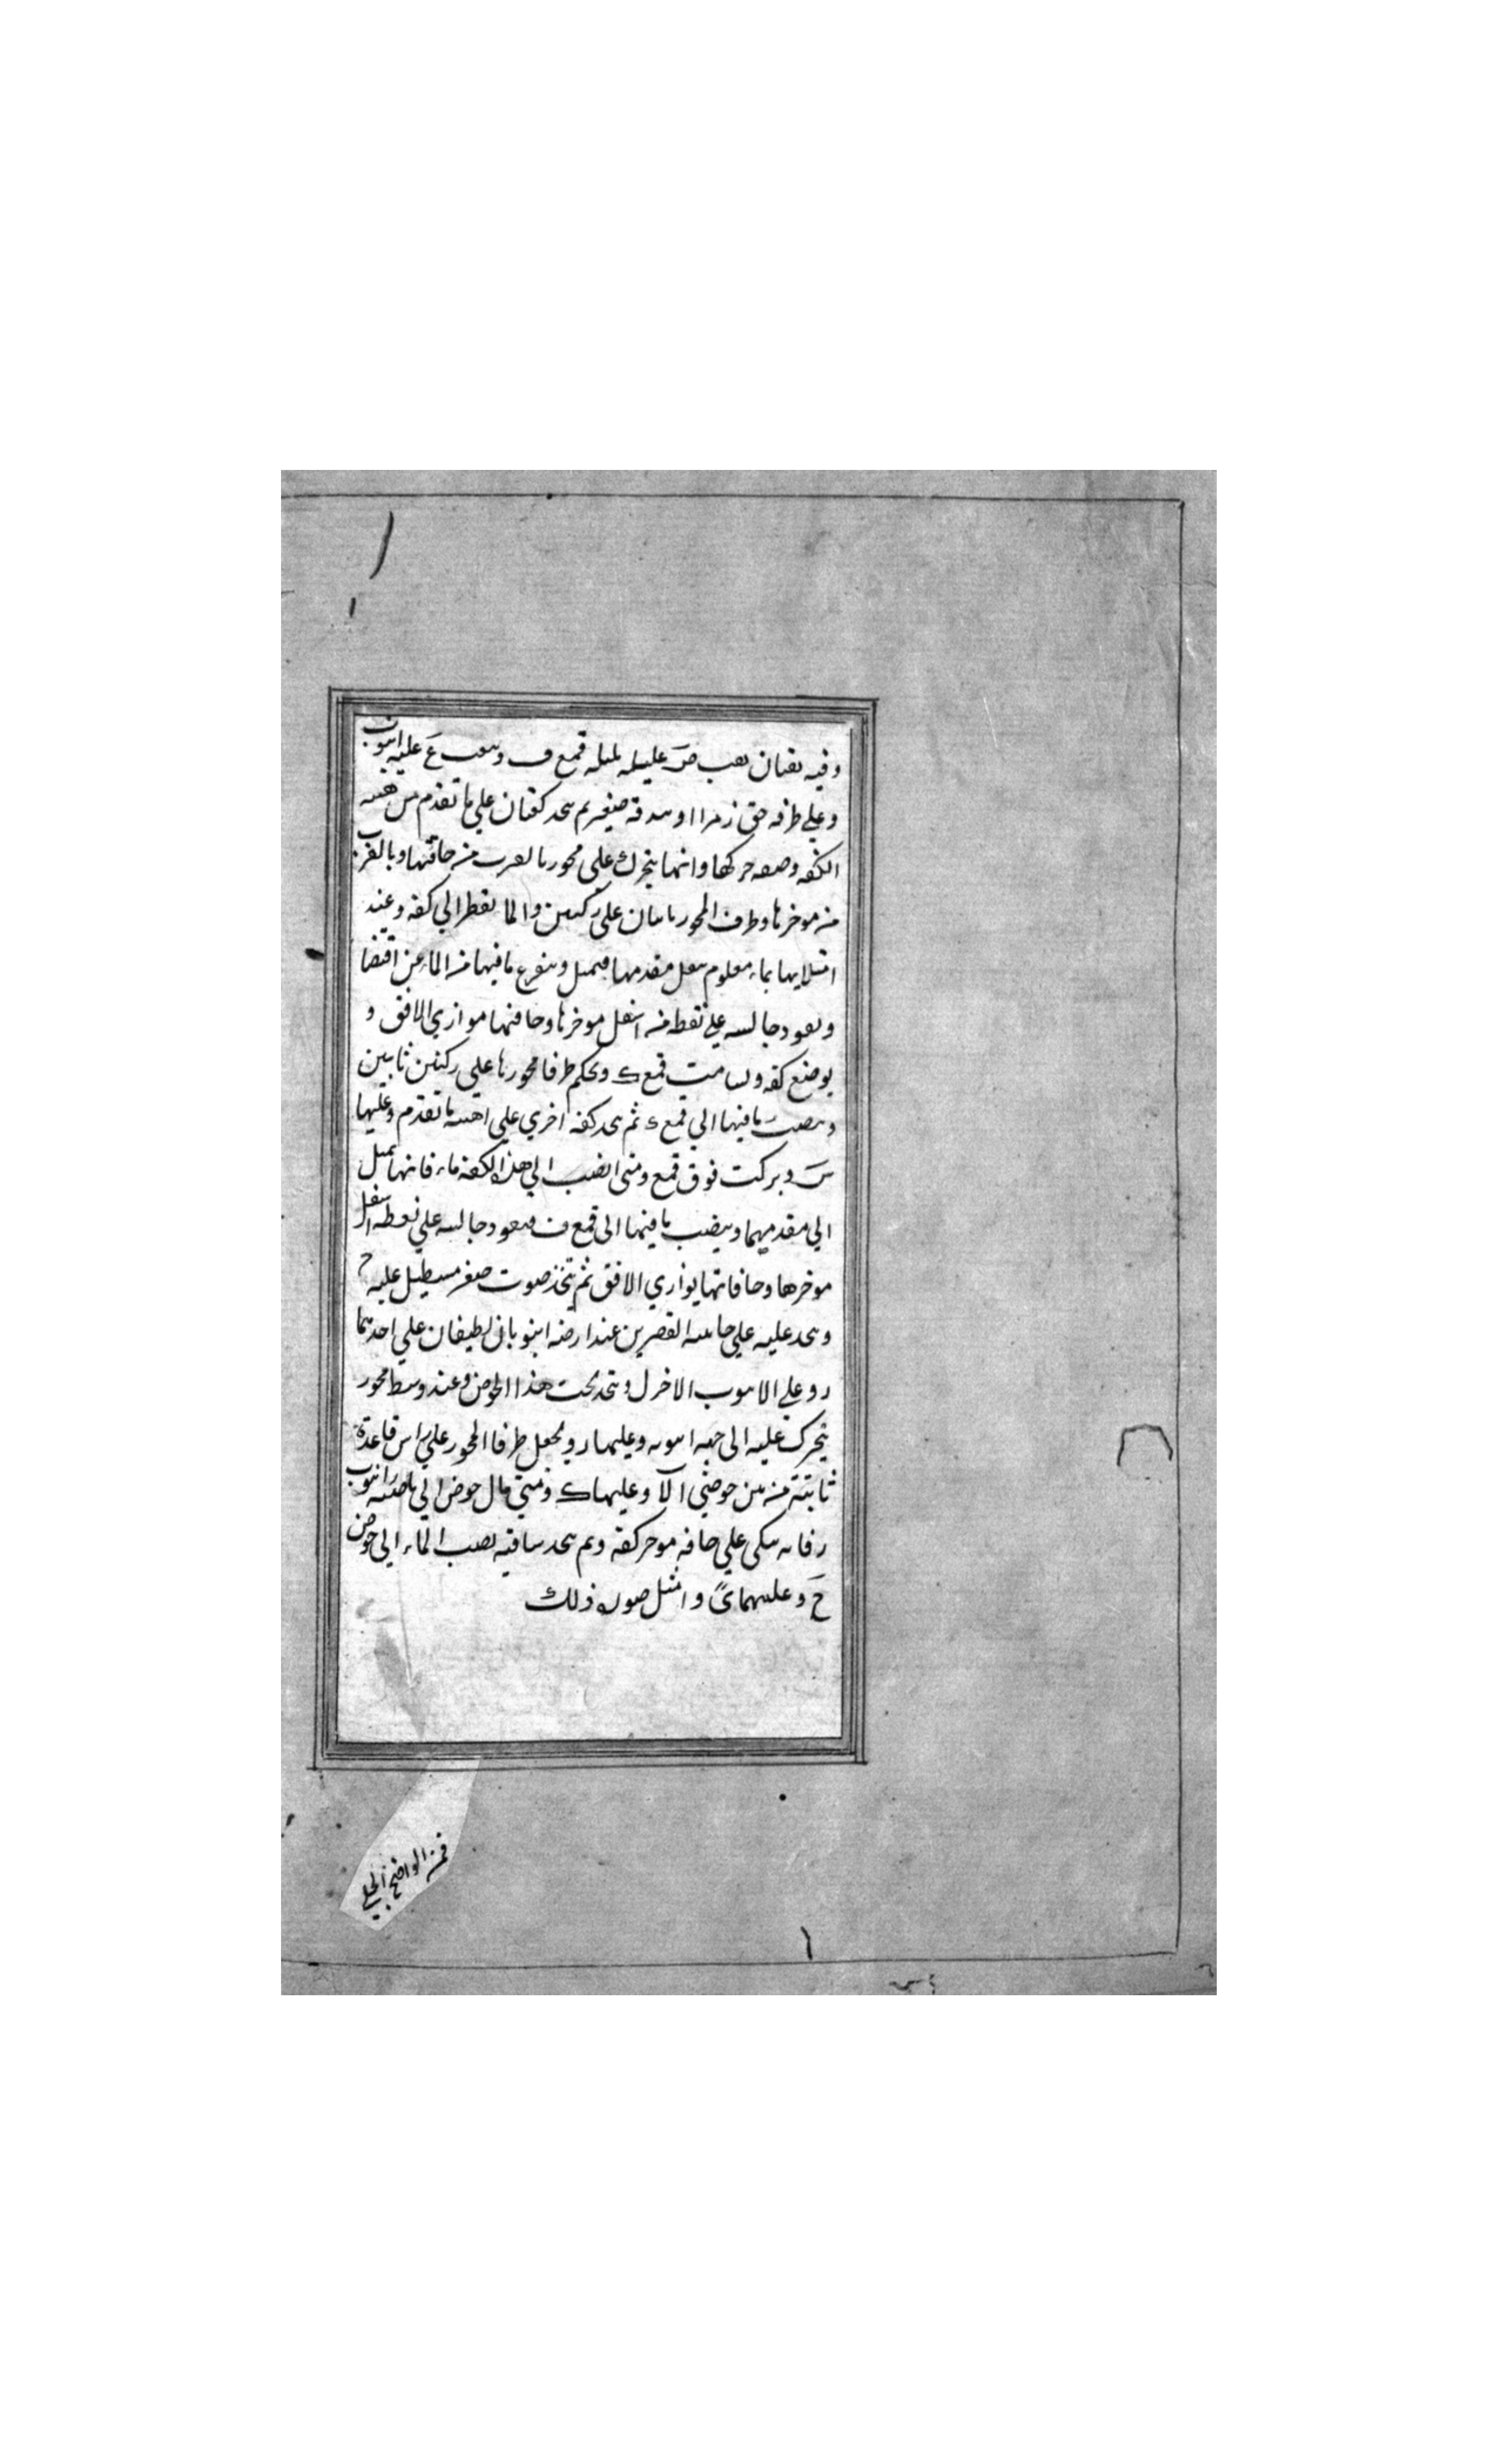 وفيه ثقبان ثقب ص عليه قمع ف وثقب ع عليه انبوب
وعلي طرفه حق زمر او بندقة صفير ثم يتخذ كفتان علي ما تقدم من هيئة
الكفه وصفه حركها وانها يتحرك علي محور بالقرب من حافتها وبالقرب
من موخرها وطرف المحور ثابتان علي ركنين والما يقطر الي كفه وعند
امتلايها بماء معلوم يثقل مقدمها فيميل ويتفرغ ما فيها من الماء عن اقتضا
ويعود جالسه علي نقطه من اسفل موخرها وحافتها موازي الافق و
يوضع كفه ولسامت قمع ك ويحكم طرفا محورها علي ركنين ثابتين
وينصب ما فيها الي قمع ثم يتخذ كفه اخري علي هيئة ما تقدم وعليها
س ويركب فوق قمع ومتي انصب الي هذا الكفه ماء فانها تميل
الي مقدميهما ويصب ما فيها الي قمع ف ويعود جالسه علي نقطه اسفل
موخرها وحافاتها يوازي الافق ثم يتخذ صوت صغر مستطيل عليه ح
ويتخذ عليه علي جانبيه القصرين عند ارضه انبوبان لطيفان علي احدهما
ر وعلي الانبوب الاخر ل ويتخذ تحت هذا الحوض وعند وسط محور
يتحرك عليه الي جهه انبوبه وعليهما ر ويجعل طرفا المحور علي راس قاعدة
ثابتة من بين حوضي الآ وعليها ك ومتي مال حوض الي ناحيه انبوب
ر فانه يتكي علي حافه موخر كفة وثم يتخذ ساقيه يصب الماء الي حوض
ح وعليهما ي وامثل صوره ذلك
فمن الواضح الجلي